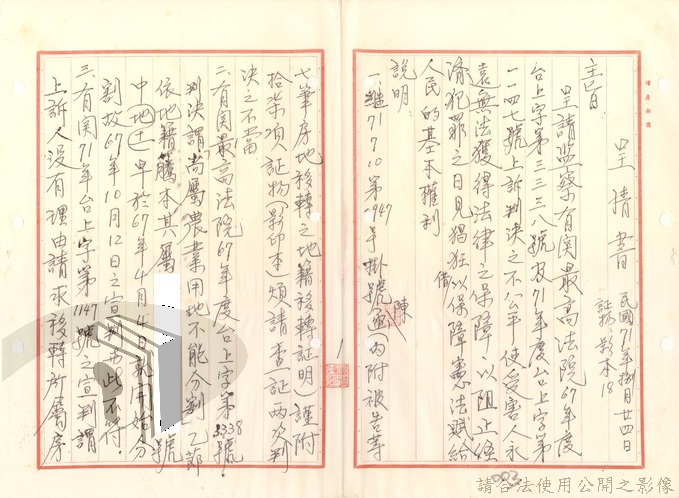 呈請書 民國71年捌月廿四日
証物影本18
主旨:
呈請監察有関最高法院67年度
台上字第三三三八號及71年度台上字第
一一四七號上訴判決之不公平使受害人永
遠無法獲得法律之保障以阻止經
濟犯罪之日見猖狂以保障憲法賦給
人民的基本權利
說明:
一.繼71.7.10第1947号掛號函(內附被告等
陳
七筆房地移轉之地籍移轉証明)謹附
拾柒項証物(影印本)煩請查証兩次判
決之不當
二.有関最高法院67年度台上字第3338號.
判決謂尚屬農業用地不能分割乙節
依地籍謄本其屬
號
中地
早於67年4月4日
開始分
割故67年10月12日之宣判
此不符.
三.有関71年台上字第1147號之宣判謂
上訴人没有理由請求移轉所屬房
002
請合法使用公開之影像